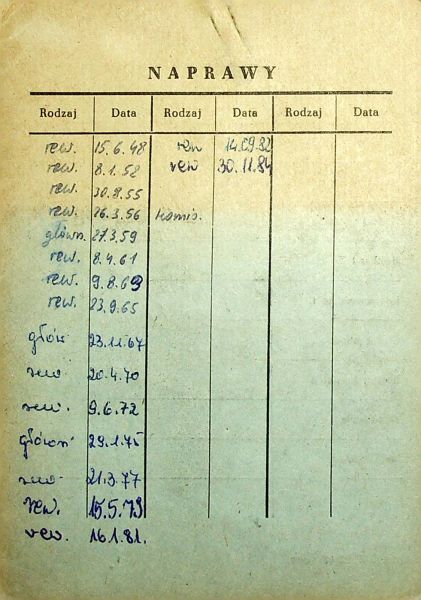 NAPRAWY
Rodzaj Data Rodzaj Data Rodzaj Data
rew. 15.6.48 rew 14.09.82
rew. 8.1.52 rew 30.11.84
rew. 30.8.55
rew. 26.3.56 komis.
główn. 27.3.59
rew. 8.4.61
rew. 9.8.63
rew. 23.9.65
głów 23.11.67
rew 20.4.70
rew. 9.6.72
główn 29.1.75
rew 21.3.77
rew. 15.5.79
rew. 16.1.81.